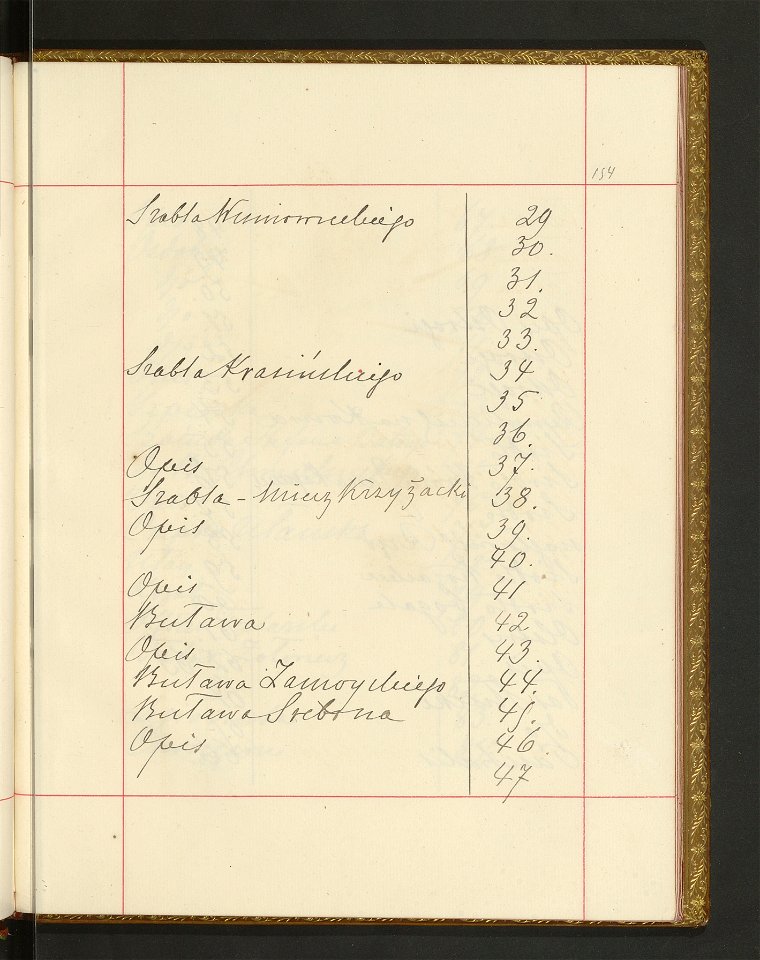 154
Szabla Wiśniowieckiego 29
30.
31.
32
33.
Szabla Krasińskiego 34
35
36.
Opis 37.
Szabla - Miecz Krzyżacki 38.
Opis 39.
40.
Opis 41
Buława 42.
Opis 43.
Buława Zamoyskiego 44.
Buława Srebrna 45.
Opis 46.
47